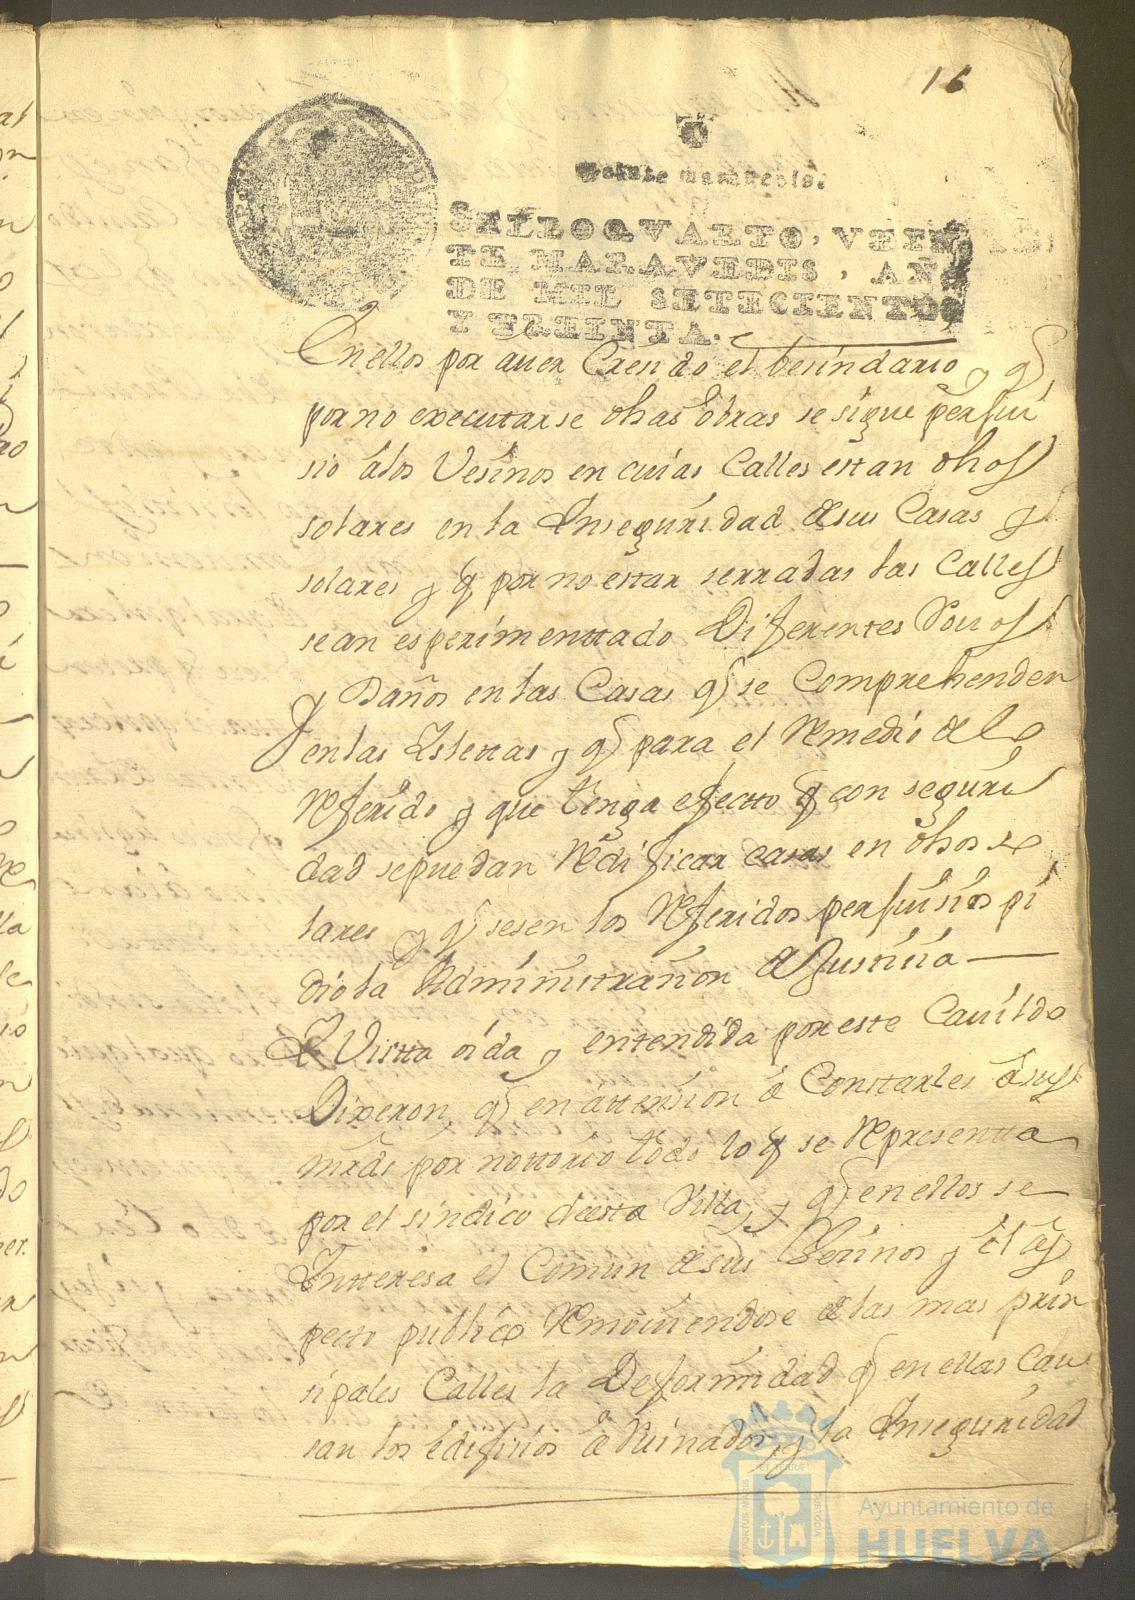 16
Veinte maravedis.
SELLO QVARTO, VEIN
TE MARAVEDIS, AÑO
DE MIL SETECIENTOS
Y TREINTA.
En ellos por aver Cresido el besindario, y q̃
por no executarse dhas obras se sigue perjui
sio á los Vesinos en cuias Calles estan dhos
solares en la Inseguridad de sus Casas y
solares y q̃ por no estar serradas las Calles
se an esperimenttado Diferentes Rouos
y Daños en las Casas q̃ se Comprehenden
en las Isletas y q̃ para el Remedio de lo
Referido y que tenga efectto y con seguri
dad se puedan Redificar casas en dhos so
lares y q̃ sesen los Referidos perjuisios pi
dio la Administrasion de Justisia
Y Vistta oida y entendida por este Cavildo
Dixeron q̃ en attension á Constarles á sus
mrds por nottorio todo lo q̃ se Representta
por el sindico deesta Villa, y q̃ en ellos se
Intteresa el Comun de sus Vesinos y el as
pecto publico Remouiendose de las mas prin
sipales Calles la Deformidad q̃ en ellas Cau
san los edifisios aRuinados, y la Inseguridad
PORTUS MARIS
ET TERRAE
CUSTODIA
Ayuntamiento de
HUELVA